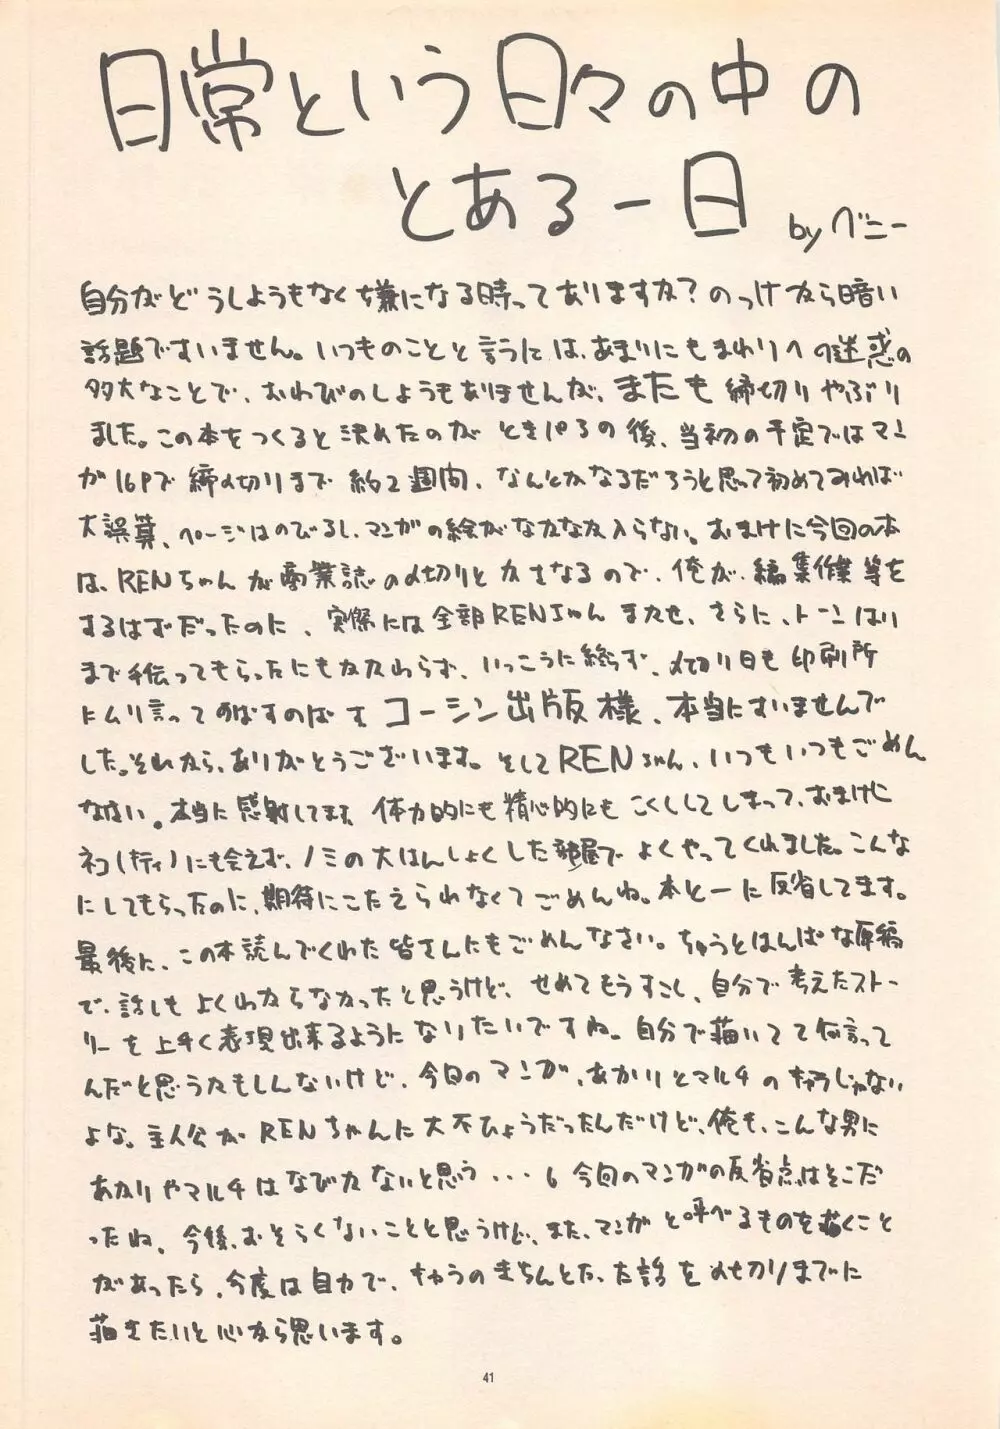 日常という日々の中の
とある一日 by ベニー
自分がどうしようもなく嫌になる時ってありますか?のっけから暗い
話題ですいません。いつものことと言うには、あまりにもまわりへの迷惑の
多大なことで、おわびのしようもありませんが、またも締切りやぶり
ました。この本をつくると決めたのがときパろの後、当初の予定ではマン
が16Pで締め切りまで約2週間、なんとかなるだろうと思って初めてみれば
大誤算、ページはのびるし、マンガの絵がなかなか入らない。おまけに今回の本
は、RENちゃんが商業誌の〆切りとかさなるので、俺が、編集作業等を
するはずだったのに、実際には全部RENちゃんまかせ、さらに、トーンはり
まで手伝ってもらったにもかかわらず、いっこうに終らず、〆切り日も印刷所
にムリ言ってのばすのばす コーシン出版様、本当にすいませんで
した。それから、ありがとうございます。そしてRENちゃん、いつもいつもごめん
なさい。本当に感射してます 体力的にも精心的にもこくししてしまって、おまけに
ネコ(ティ)にも会えず、ノミの大はんしょくした部屋でよくやってくれました。こんな
にしてもらったのに、期待にこたえられなくてごめんね。本とーに反省してます。
最後に、この本読んでくれた皆さんにもごめんなさい。ちゅうとはんぱな原稿
で、話しもよくわからなかったと思うけど、せめてもうすこし、自分で考えたストー
リーを上手く表現出来るようになりたいですね。自分で描いてて何言って
んだと思うかもしんないけど、今回のマンガ、あかりとマルチのキャラじゃない
よな。主人公がRENちゃんに大不ひょうだったんだけど、俺も、こんな男に
あかりやマルチはなびかないと思う・・・。今回のマンガの反省点はそこだ
ったね。今後、おそらくないことと思うけど、また、マンガと呼べるものを描くこと
があったら、今度は自力で、キャラのきちんとた、た話を〆切りまでに
描きたいと心から思います。
41